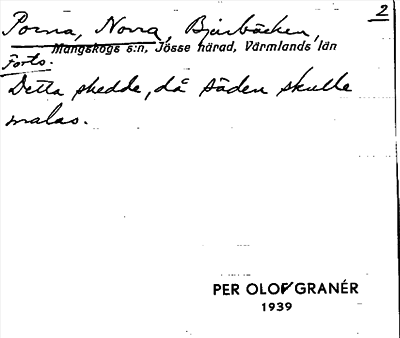 2
Porna, Norra, Bjurbäcken,
Mangskogs s:n, Jösse härad, Värmlands län
Forts.
Detta skedde, då säden skulle
malas.
PER OLOF GRANÉR
1939